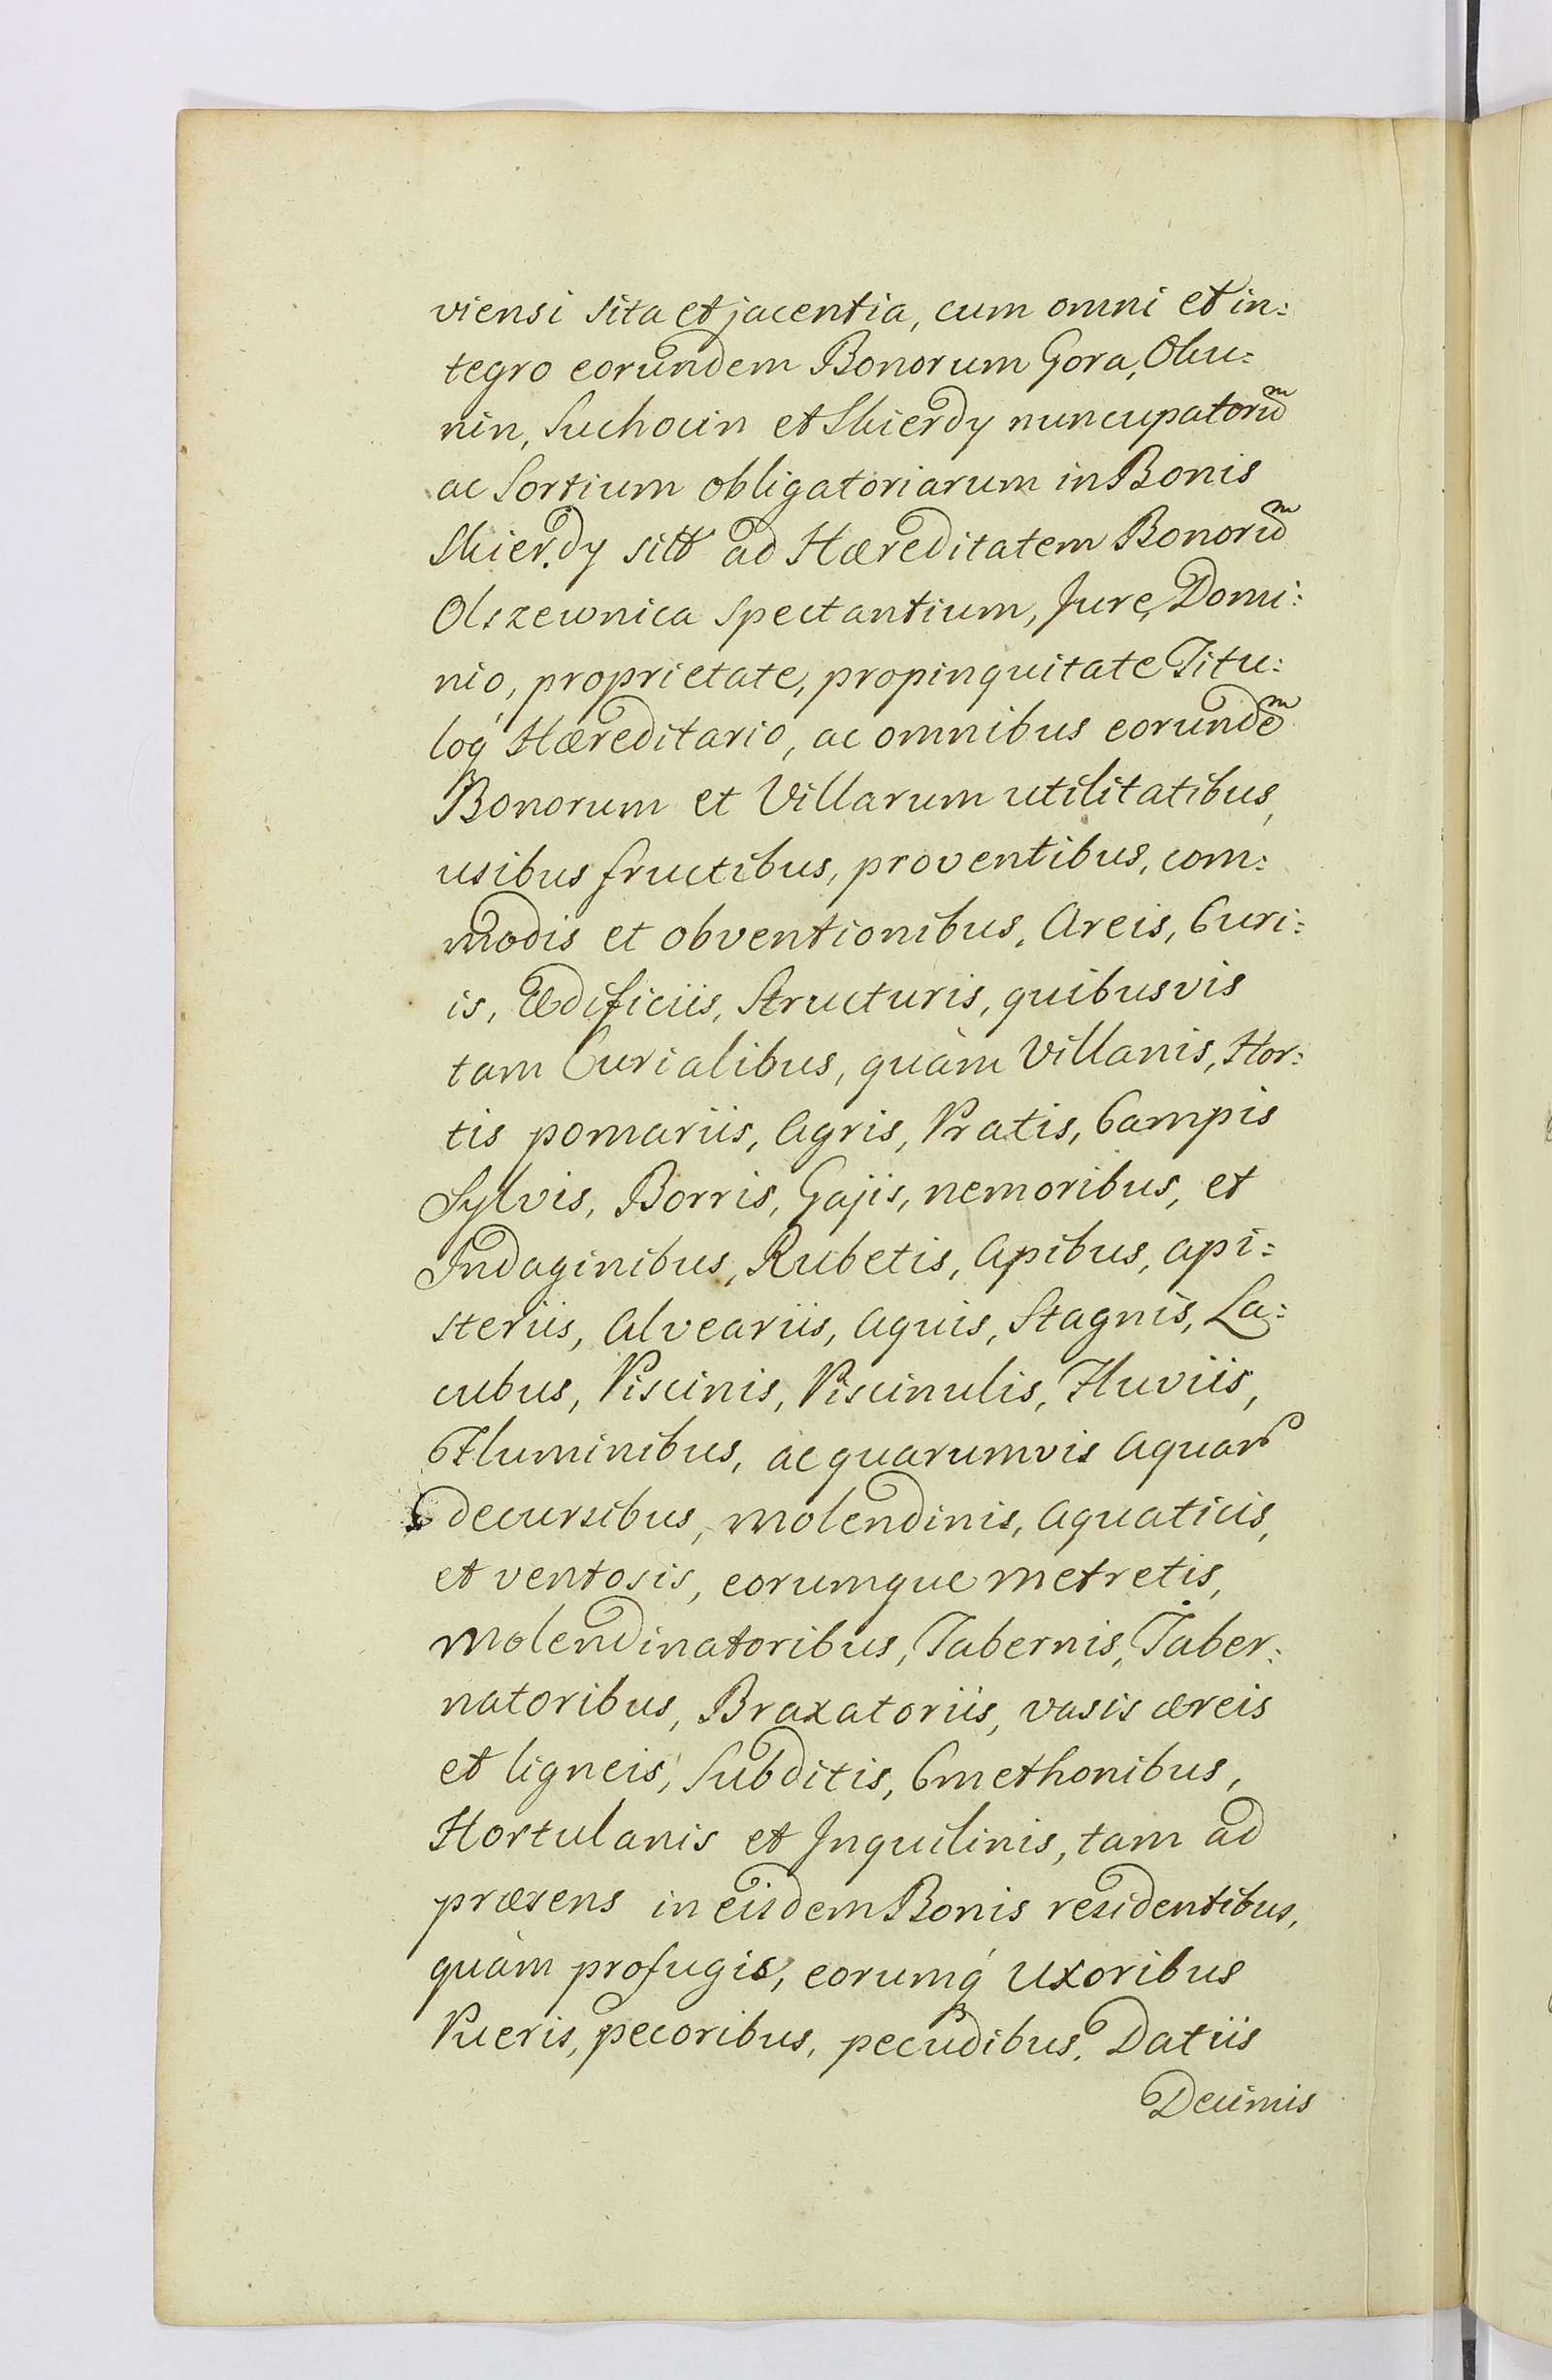 viensi sita et jacentia, cum omni et in:
tegro eorundem Bonorum Gora, Olu:
nin, Suchocin et Skierdy nuncupatorum
ac Sortium obligatoriarum in Bonis
Skierdy sitt ad Hæreditatem Bonorum
Olszewnica spectantium, Jure, Domi:
nio, proprietate, propinquitate Titu:
loq́ Hæreditario, ac omnibus eorundem
Bonorum et Villarum utilitatibus,
usibus fructibus, proventibus, com:
modis et obventionibus, Areis, Curi:
is, Ædificiis, Structuris, quibusvis
tam Curialibus, quàm Villanis, Hor:
tis pomariis, Agris, Pratis, Campis
Sylvis, Borris, Gajis, nemoribus, et
Indaginibus, Rubetis, Apibus, Api:
steriis, Alveariis, Aquis, Stagnis, La:
cubus, Piscinis, Piscinulis, Fluviis,
Fluminibus, ac quarumvis Aquar
decursibus, molendinis, Aquaticis,
et ventosis, eorumque metretis,
molendinatoribus, Tabernis, Taber:
natoribus, Braxatoriis, vasis æreis
et ligneis, Subditis, Cmethonibus,
Hortulanis et Inquilinis, tam ad
præsens in eisdem Bonis residentibus,
quàm profugis, eorumq́ Uxoribus
Pueris, pecoribus, pecudibus, Datiis
Decimis